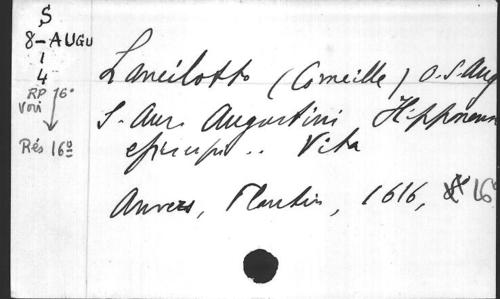 S
8-AUGU
1
4
RP 16°
voir
Rés 16º
Lancilotto (Corneille) O.S. Aug
S. Aur. Augustini Hipponens
episcopi .. Vita
Anvers, Plantin, 1616, 16°